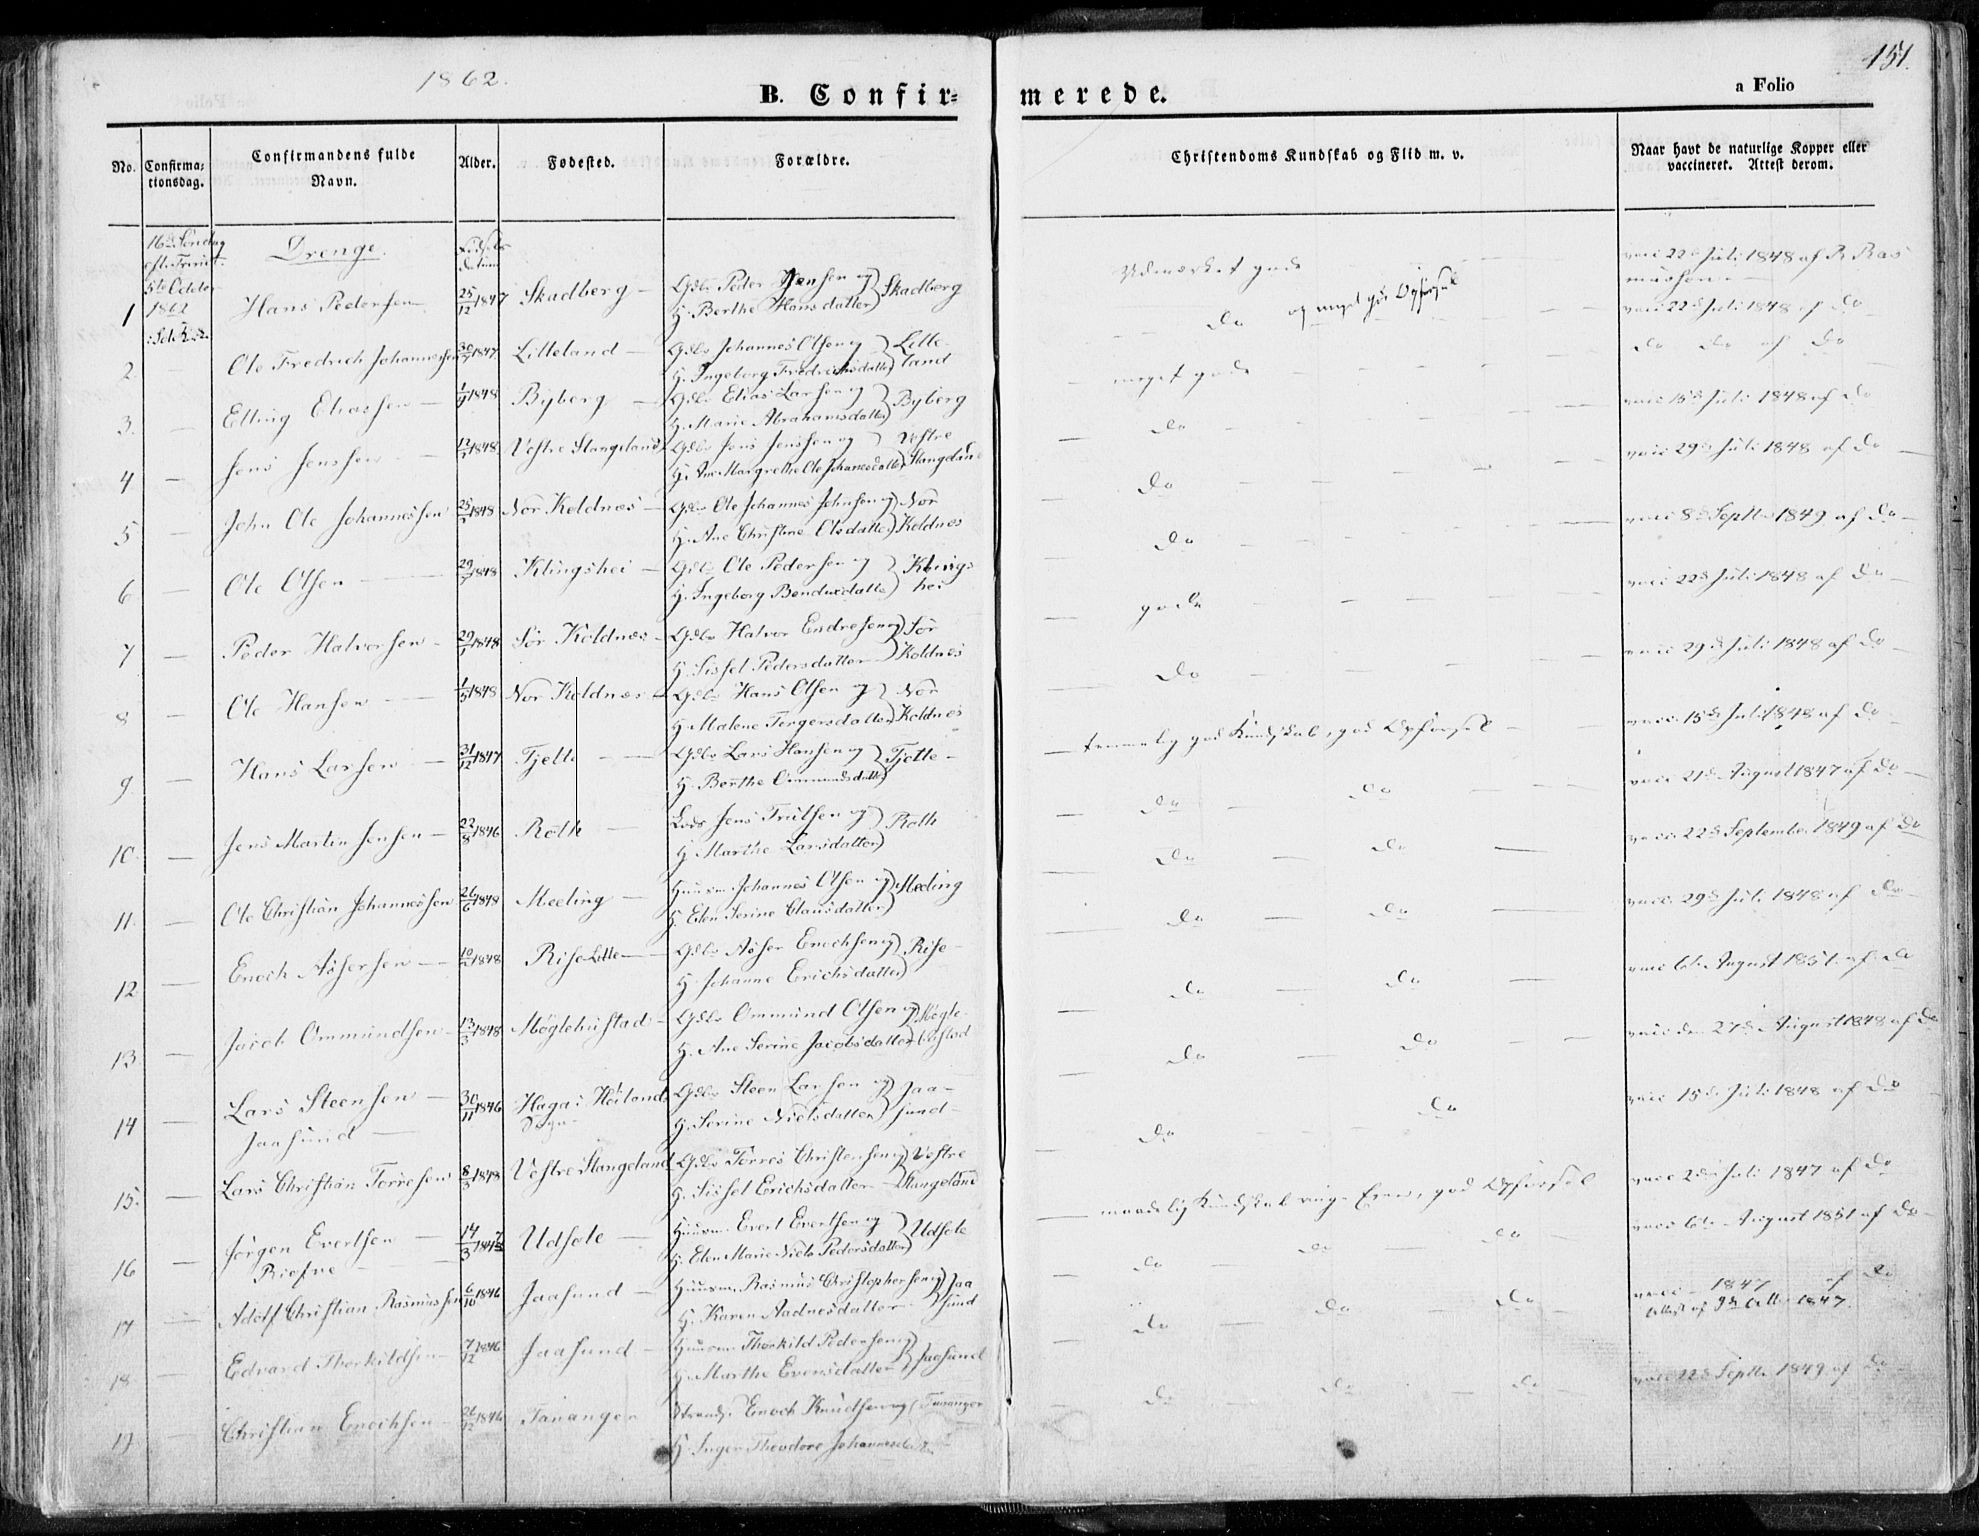 1862.
151.
B. Confir= merede.
a Folio
No. Confirma=tionsdag. Confirmandens fulde Navn. Alder. Fødested. Forældre. Christendoms Kundskab og Flid m. v. Naar havt de naturlige Kopper eller vaccineret. Attest derom.
16de Søndag Drenge.
5te October
1862
1 Hans Pedersen 25/12 1847 Skadberg Gdbr Peder Hansen og H. Berthe Hansdatter Skadberg Udmærket gode og meget god Opførsel vacc 22de Juli 1848 af R Rasmussen
2. Ole Fredrich Johannessen 1847 Lilleland Gdbr Johannes Olsen og H. Ingeborg Fredrichsdatter Lilleland Do vacc 22de Juli 1848 af Do
3. Elling Eliassen 1848 Byberg Gdbr Elias Larsen og H. Marie Abrahamsdatter Byberg meget gode Do Do af Do
4 Jens Jenssen 1848 Vestre Stangeland Gdbr Jens Jenssen og H. Ane Margrethe Ole Johanesdatter Vestre Stangeland Do vacc 15de Juli 1848 af Do
5 John Ole Johannessen 1848 Nor Koldnes Gdbr Ole Johannes Johnsen og H. Ane Christine Olsdatter Nor Koldnes Do vacc 29de Juli 1848 af Do
6 Ole Olsen 1848 Klingshei Gdbr Ole Pedersen og H. Ingeborg Bendixdatter Klingshei Do vacc 8de Septbr 1849 af Do
7 Peder Halvorsen 29/1 1848 Sør Koldnes Gdbr Halvor Endresen og H. Sissel Pedersdatter Sør Koldnes gode vacc 22de Juli 1848 af Do
8 Ole Hansen 1848 Nor Koldnes Gdbr Hans Olsen og H. Malene Tergersdatter Nor Koldnes Do vacc 29de Juli 1848 af Do
9 Hans Larsen 31/12 1847 Tjelte Gdbr Lars Hansen og H. Berthe Ommundsdatter Tjelte temmelig god Kundskab, god Opførsel vacc 15de Juli 1848 af Do
10 Jens Martin Jensen 22/8 1846 Roth Lods Jens Trulsen og H. Marthe Larsdatter Roth Do Do vacc 21de August 1847 af Do
11. Ole Christian Johannessen 26/6 1848 Meeling Huusm. Johannes Olsen og H. Elen Serine Clausdatter Meeling Do Do vacc 22de September 1849 af Do
12 Enoch Assersen 1848 Rise Lille Gdbr Asser Enochsen og H. Johanne Erichsdatter Rise Do Do vacc 29de Juli 1848 af Do
13 Jacob Ommundsen 13/3 1848 Møglehustad Gdbr Ommund Olsen og H. Ane Serine Jacobsdatter Do Do vacc 6te August 1851 af Do
14 Lars Steensen Jaasund 30/11 1846 Haga i Høilands Sogn Gdbr Steen Larsen og H. Serine Nielsdatter Jaasund Do Do vacc den 27de August 1848 af Do
15. Lars Christian Torresen 8/3 1848 Vestre Stangeland Gdbr Torres Christensen og H. Sissel Erichsdatter Vestre Stangeland Do Do vacc 15de Juli 1848 af Do
16 Jørgen Evertsen 14/3 Udsole Huusm. Evert Evertsen og H. Elen Marie Niels Pedersdatter Udsole maadelig Kundskab ringe Evner, god Opførsel vacc Juli 1847 af Do
17 Adolf Christian Rasmussen 6/10 1846 Jaasund Huusm. Rasmus Christophersen og H. Karen Aadnesdatter Jaasund Do Do Do vacc 6te August 1851 af Do
18 Edvard Thorkildsen 7/12 1846 Jaasund Huusm. Thorkild Pedersen og H. Marthe Evensdatter Jaasund Do Do Do vacc 1847 af Do
Attest af 9de Octbr 1847.
19 Christian Enochsen 1846 Tananger Strands. Enoch Knudsen og H. Inger Theodore Johannesdatter Tananger Do Do Do vacc 22de Septbr 1849 af Do